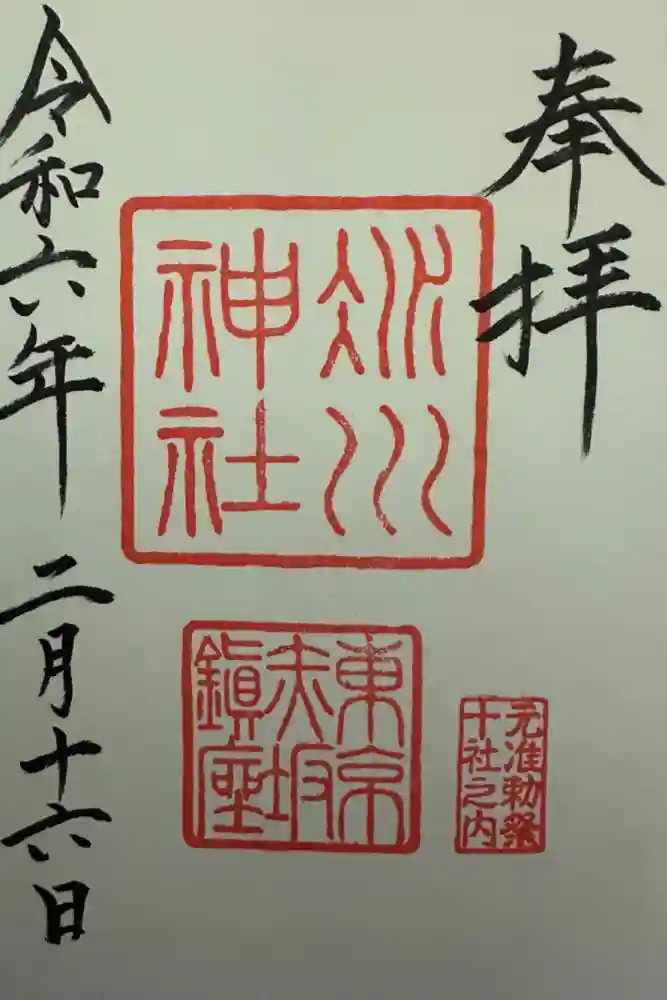 奉拝
冰川
神社
東京
赤坂
鎭座
元准勅祭
十社之内
令和六年二月十六日